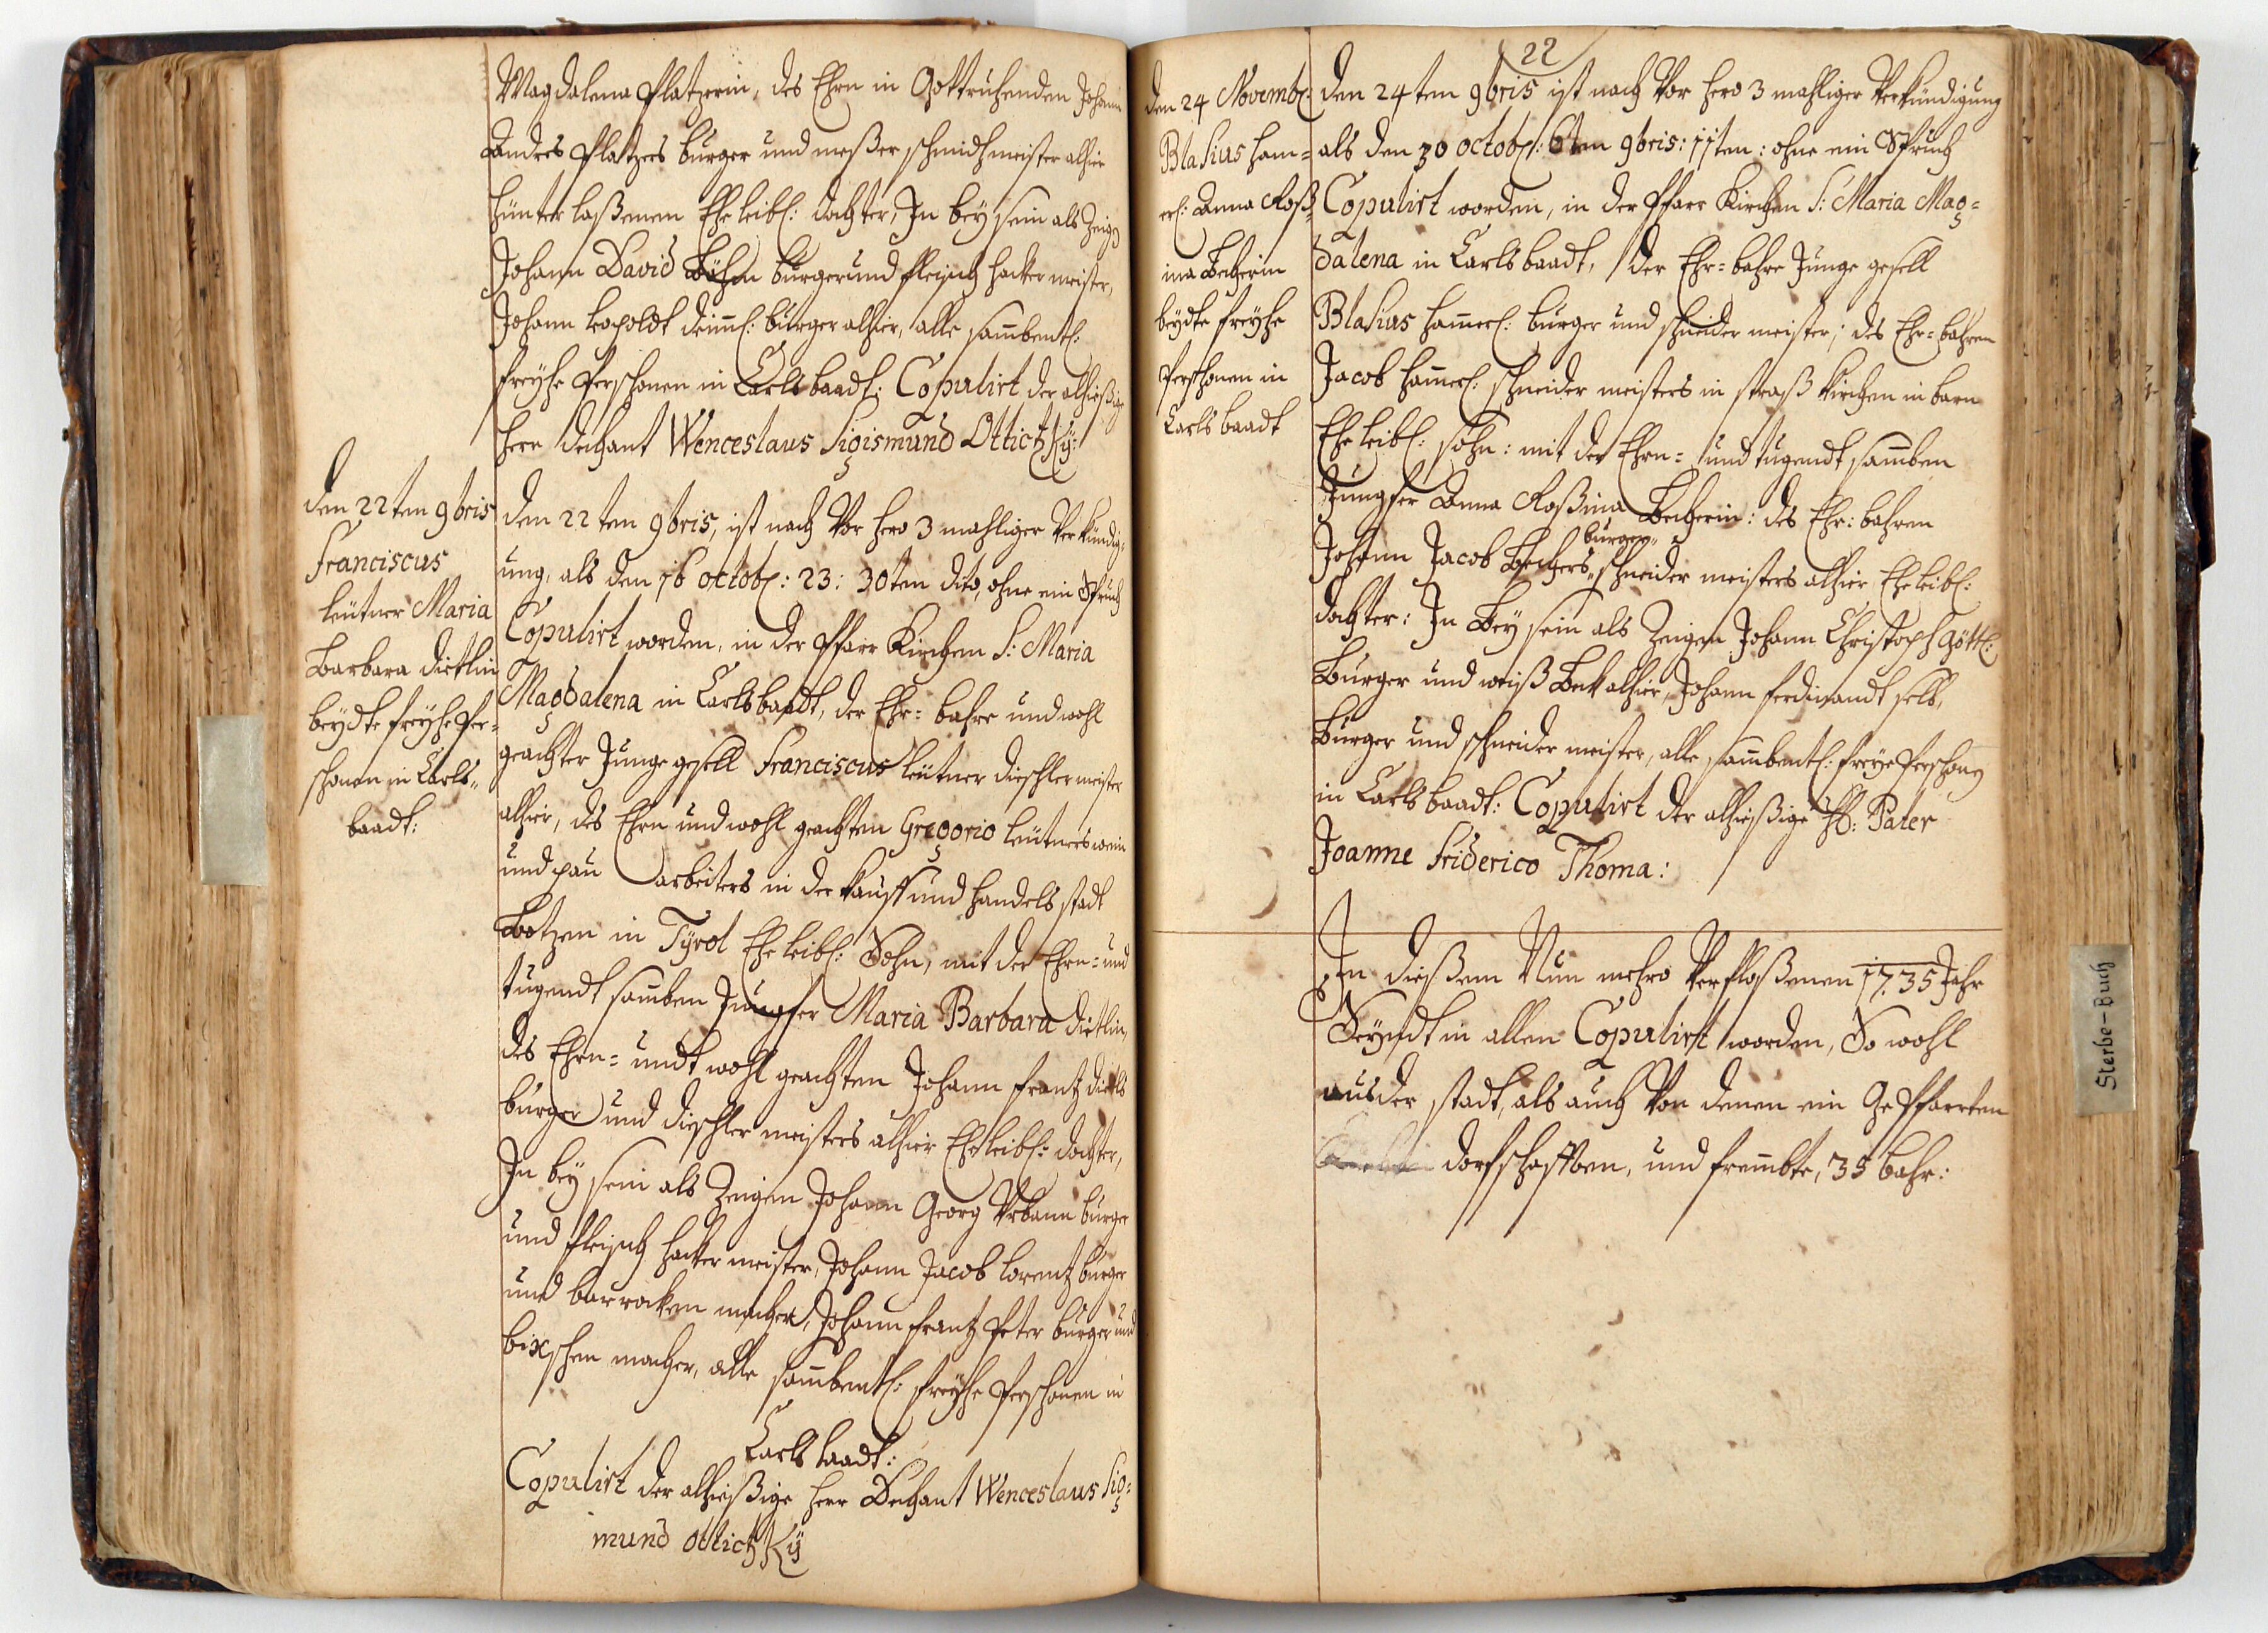 Magdalena Platzerin, des Ehrn in Gott ruhenden Johann
Anders Platzers burger und meßer schmidtmeister alhier
hünter laßenen Ehe leibl: dochter, In bey sein als Zeigen
Johann David Böhm burger und fleisch hacker meister,
Johann leopoldt deiml: burger alhier, alle sambentl:
freÿhe Perschonen in Carlsbaadt: Copulirt der alhießige
herr dechant Wenceslaus Sigismund Ottictzkÿ:
den 22ten 9bris
Franciscus
leütner Maria
Barbara dietlin
beÿdte freÿhe Per=
schonen in Carls=
baadt:
den 22ten 9bris, ist nach Vor hero 3 mahliger Verkündig=
ung, als den 16 octob: 23: 30ten dito, ohne ein Spruch
Copulirt worden, in der Pfarr Kirchen S: Maria
Magdalena in Carlsbaadt, der Ehr=bahre und wohl
geachter Junge gesell Franciscus leütner dieschler meister
alhier, des Ehrn und wohl geachten Gregorio leütners wein
und pau arbeiters in der kauff und handels stadt
Botzen in Tÿrol Ehe leibl: Sohn, mit der Ehrn= und
tugendt samben Jungfer Maria Barbara dietlin,
des Ehrn= undt wohl geachten Johann frantz dietls
burger und dieschler meisters alhier Ehe leibl: dochter,
In beÿ sein als Zeigen Johann Georg Urbann burger
und fleisch hacker meister, Johann Jacob lorentz burger
und barrocken macher, Johann frantz Peter burger und
bixschen macher, alle sambentl: freÿhe Perschonen in
Carlsbaadt:
Copulirt der alhießige herr Dechant Wenceslaus Sig=
mund Ottictzkÿ
22
den 24 Novemb:
Blasius ham=
erl: Anna Roß=
ina Becherin
beÿdte freÿhe
Perschonen in
Carlsbaadt
den 24ten 9bris ist nach Vor hero 3 mahliger Verkündigung
als den 30 octob: 6ten 9bris: 11ten: ohne ein Spruch
Copulirt worden, in der Pfarr Kirchen S: Maria Mag=
dalena in Carlsbaadt, der Ehr=bahre Junge gesell
Blasius hamerl: burger und schneider meister; des Ehr=bahren
Jacob hamerl: schneider meisters in straß kirchen in barn
Ehe leibl: sohn: mit der Ehrn= und tugendt samben
Jungfer Anna Roßina Becherin: des Ehr: bahren
burger
Johann Jacob Bechers schneider meisters alhier Ehe leibl:
dochter: In Beÿ sein als Zeigen Johann Christoph Göttl:
Burger und weiß Beck alhier, Johann ferdinandt selb,
Burger und schneider meister, alle sambentl: freÿe Perschonen
in Carlsbaadt: Copulirt der alhießige H: Pater
Joanne Friderico Thoma:
In dießem Nun mehro Verfloßenen 1735 Jahr
Seÿndt in allen Copulirt worden, So wohl
aus der stadt, als auch Von denen ein Gepfarrten
dorfschafften, und frembte, 35 bahr:
Sterbe-Buch